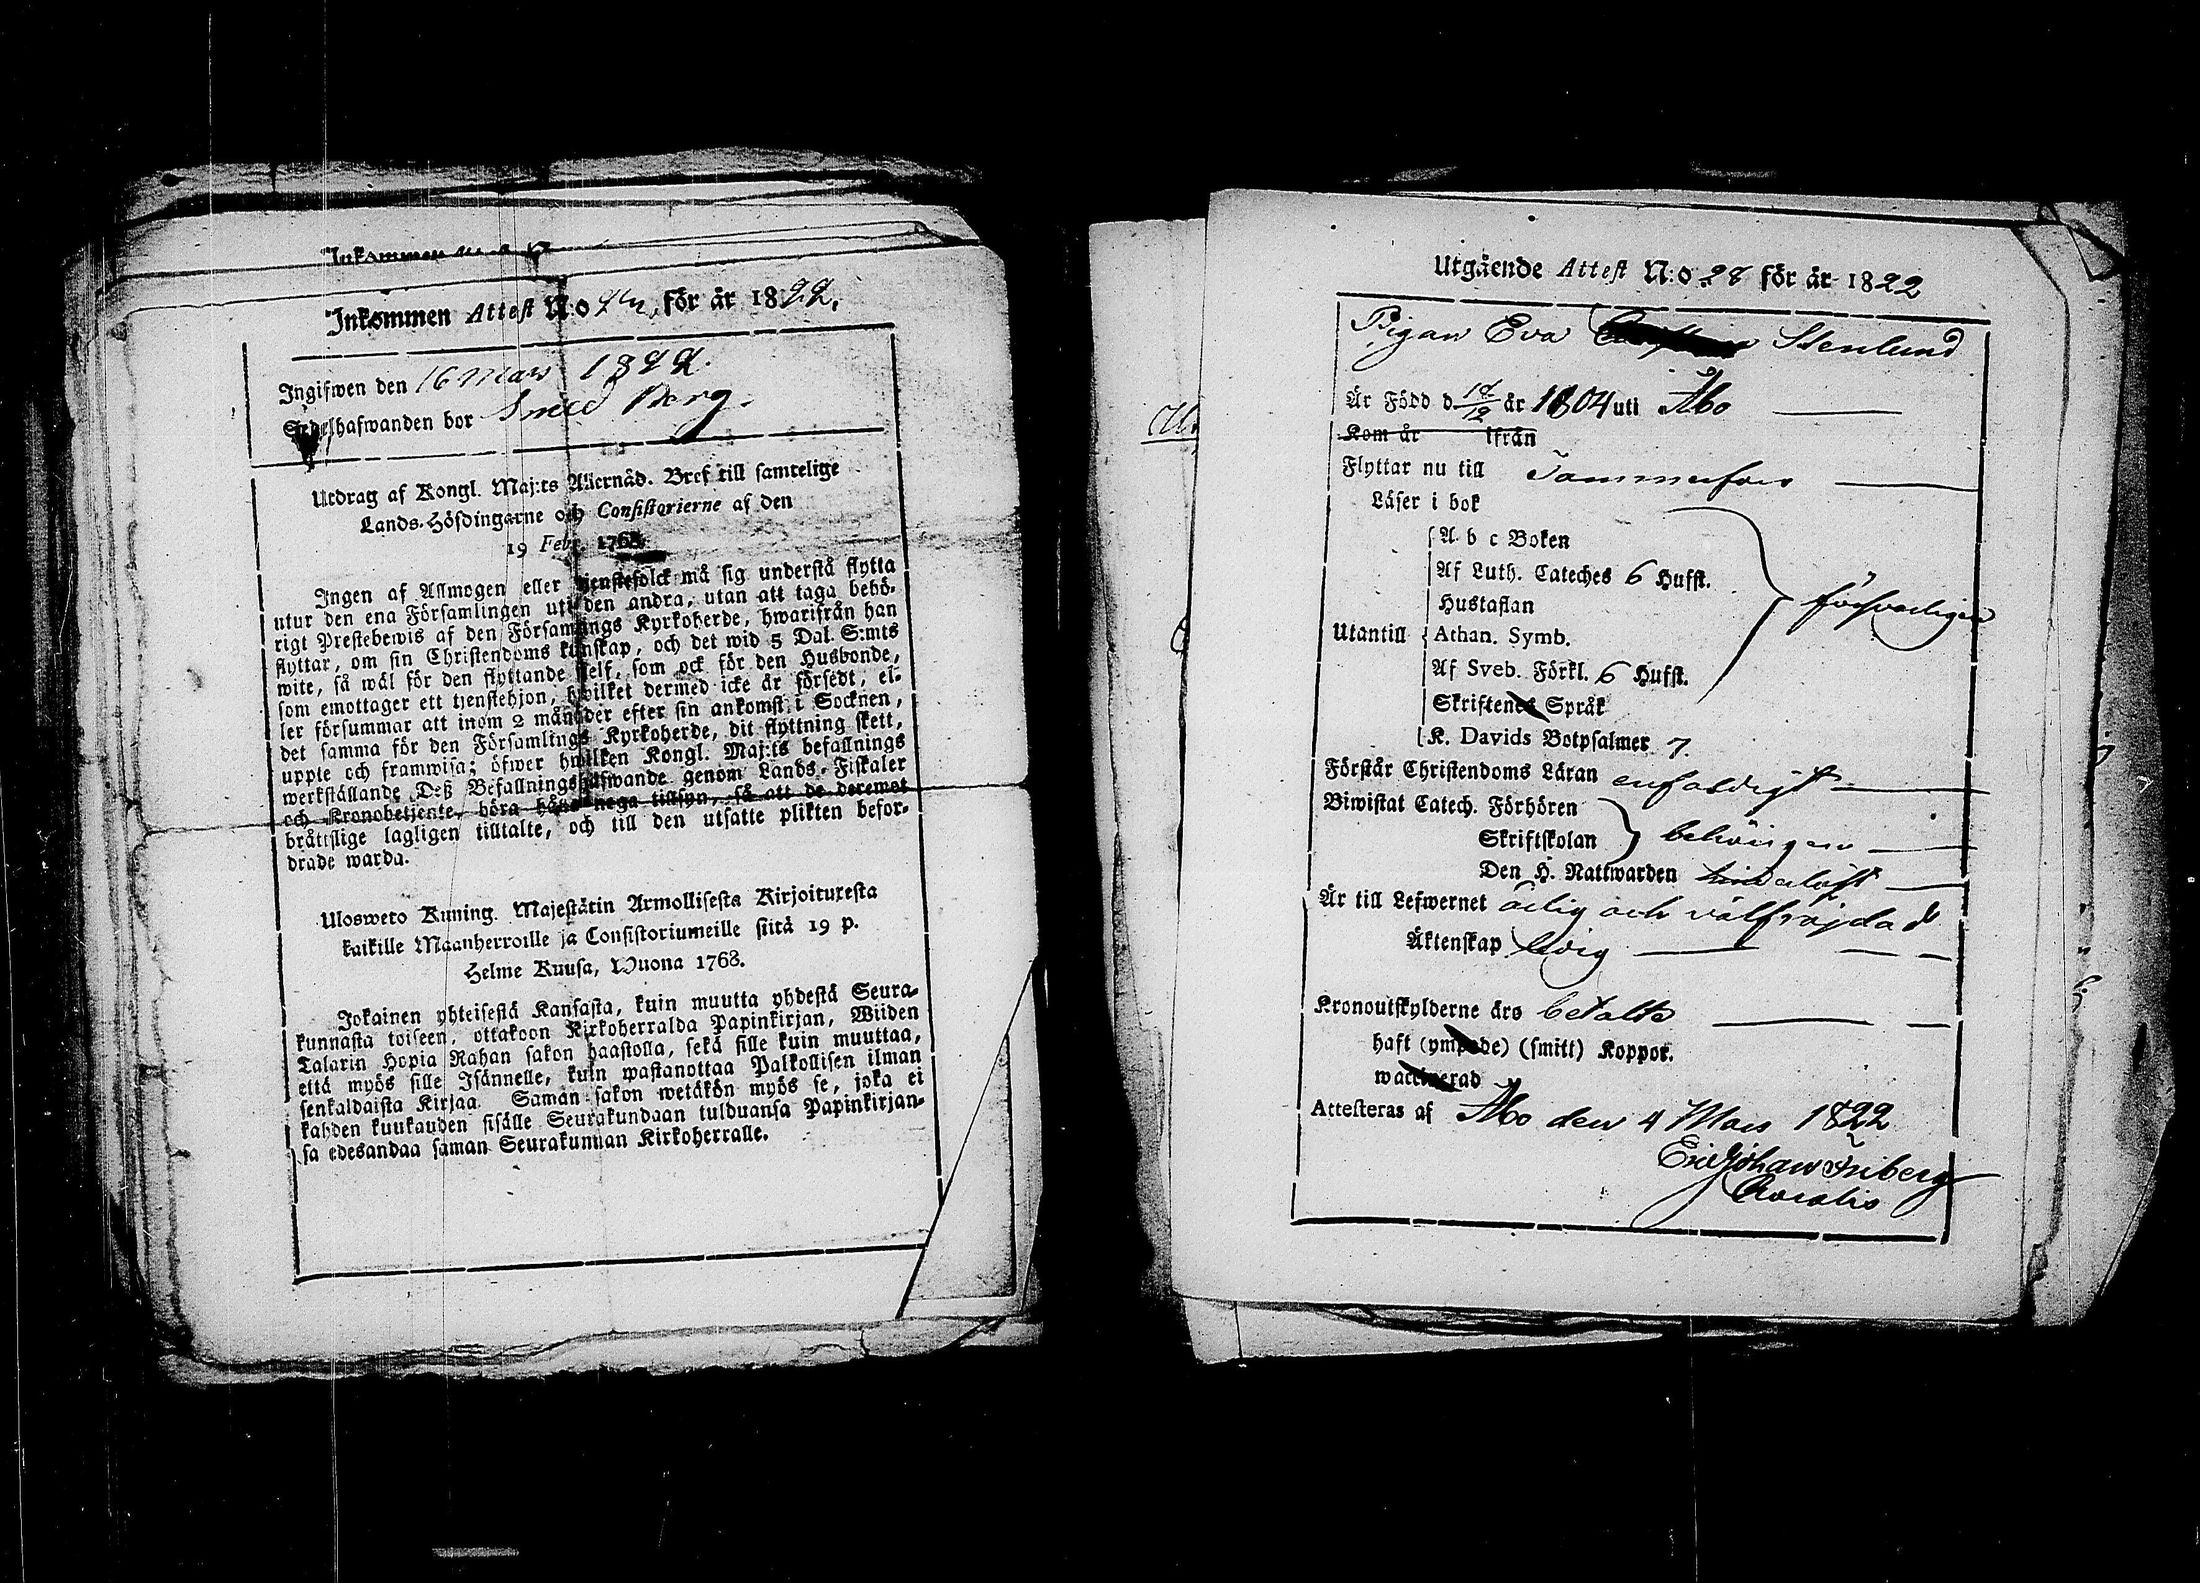 Inkommen
Inkommen Attest N:o för år 1822.
Ingifwen den 16 Mars 1822.
Sedelhafwanden bor Smed Berg.
Utdrag af Kongl. Maj:ts Allernåd. Bref till samtelige
Lands-Höfdingarne och Consistorierne af den
19 Febr. 1768.
Ingen af Allmogen eller tjenstefolck må sig understå flytta
utur den ena Församlingen uti den andra, utan att taga behö-
rigt Prestebewis af den Församlings Kyrkoherde, hwarifrån han
flyttar, om sin Christendoms kunskap, och det wid 5 Dal. S:mts
wite, så wäl för den flyttande sielf, som ock för den Husbonde,
som emottager ett tjenstehjon, hwilket dermed icke är försedt, el-
ler försummar att inom 2 månader efter sin ankomst i Socknen,
det samma för den Församlings Kyrkoherde, dit flyttning skett,
uppte och framwisa; öfwer hwilken Kongl. Maj:ts befallnings
werkställande Deß Befallningshafwande genom Lands-Fiskaler
och Kronobetjente, böra hålla noga tillsyn, så att de deremot
bråttslige lagligen tilltalte, och till den utsatte plikten befor-
drade warda.
Ulosweto Kuning. Majestätin Armollisesta Kirjoituresta
kaikille Maanherroille ja Consistoriumeille siitä 19 p.
Helme Kuusa, Wuona 1768.
Jokainen yhteisestä Kansasta, kuin muutta yhdestä Seura-
kunnasta toiseen, ottakoon Kirkoherralda Papinkirjan, Wiiden
Talarin Hopia Rahan sakon haastolla, sekä sille kuin muuttaa,
että myös sille Isännelle, kuin wastanottaa Palkollisen ilman
senkaldaista Kirjaa. Saman sakon wetäkön myös se, joka ei
kahden kuukauden sisälle Seurakundaan tulduansa Papinkirjan-
sa edesandaa saman Seurakunnan Kirkoherralle.
Utgående Attest N:o 28 för år 1822
Pigan Eva Stenlund
Är Född d 18/12 år 1804 uti Åbo
Kom år ifrån
Flyttar nu till Tammerfors
Läser i bok
A b c Boken
Af Luth. Cateches 6 Hufst.
Hustaflan
försvarligen
Utantill Athan. Symb.
Af Sveb. Förkl. 6 Hufst.
Skriftenes Språk
K. Davids Botpsalmer 7.
Förstår Christendoms Läran enfaldigt
Biwistat Catech. Förhören
Skriftskolan behörigen
Den H. Nattwarden hinderlöst
Är till Lefwernet ärlig och välfräjdad
Äktenskap ledig
Kronoutskylderne äro betalte
haft (ympade) (smitt) Koppor.
waccinerad
Attesteras af Åbo den 4 Mars 1822
Eric Johan Friberg